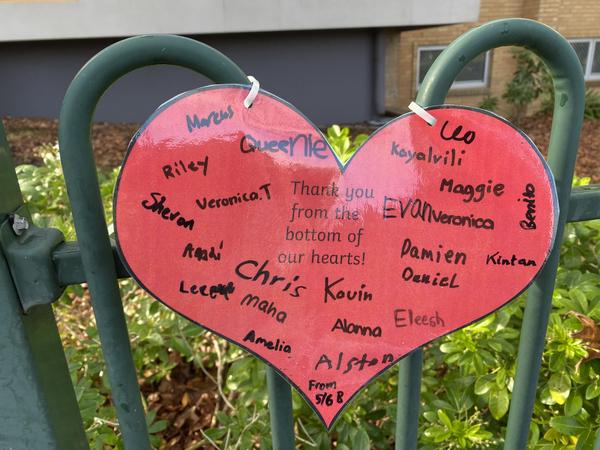 Marcus
Queenie
Leo
Kayalvili
Riley
Maggie
Veronica.T
Thank you
from the
bottom of
our hearts!
Evan
Veronica
Benito
Damien
Daniel
Kintan
Chris
Kavin
Maha
Alanna
Eleesh
Amelia
Alston
From
5/6 B